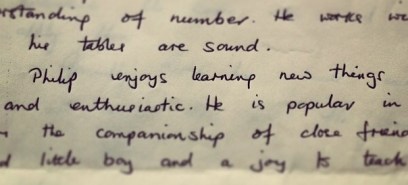 of number. He works
his tables are sound.
Philip enjoys learning new things
and enthusiastic. He is popular in
the companionship of close
little boy and a joy to teach